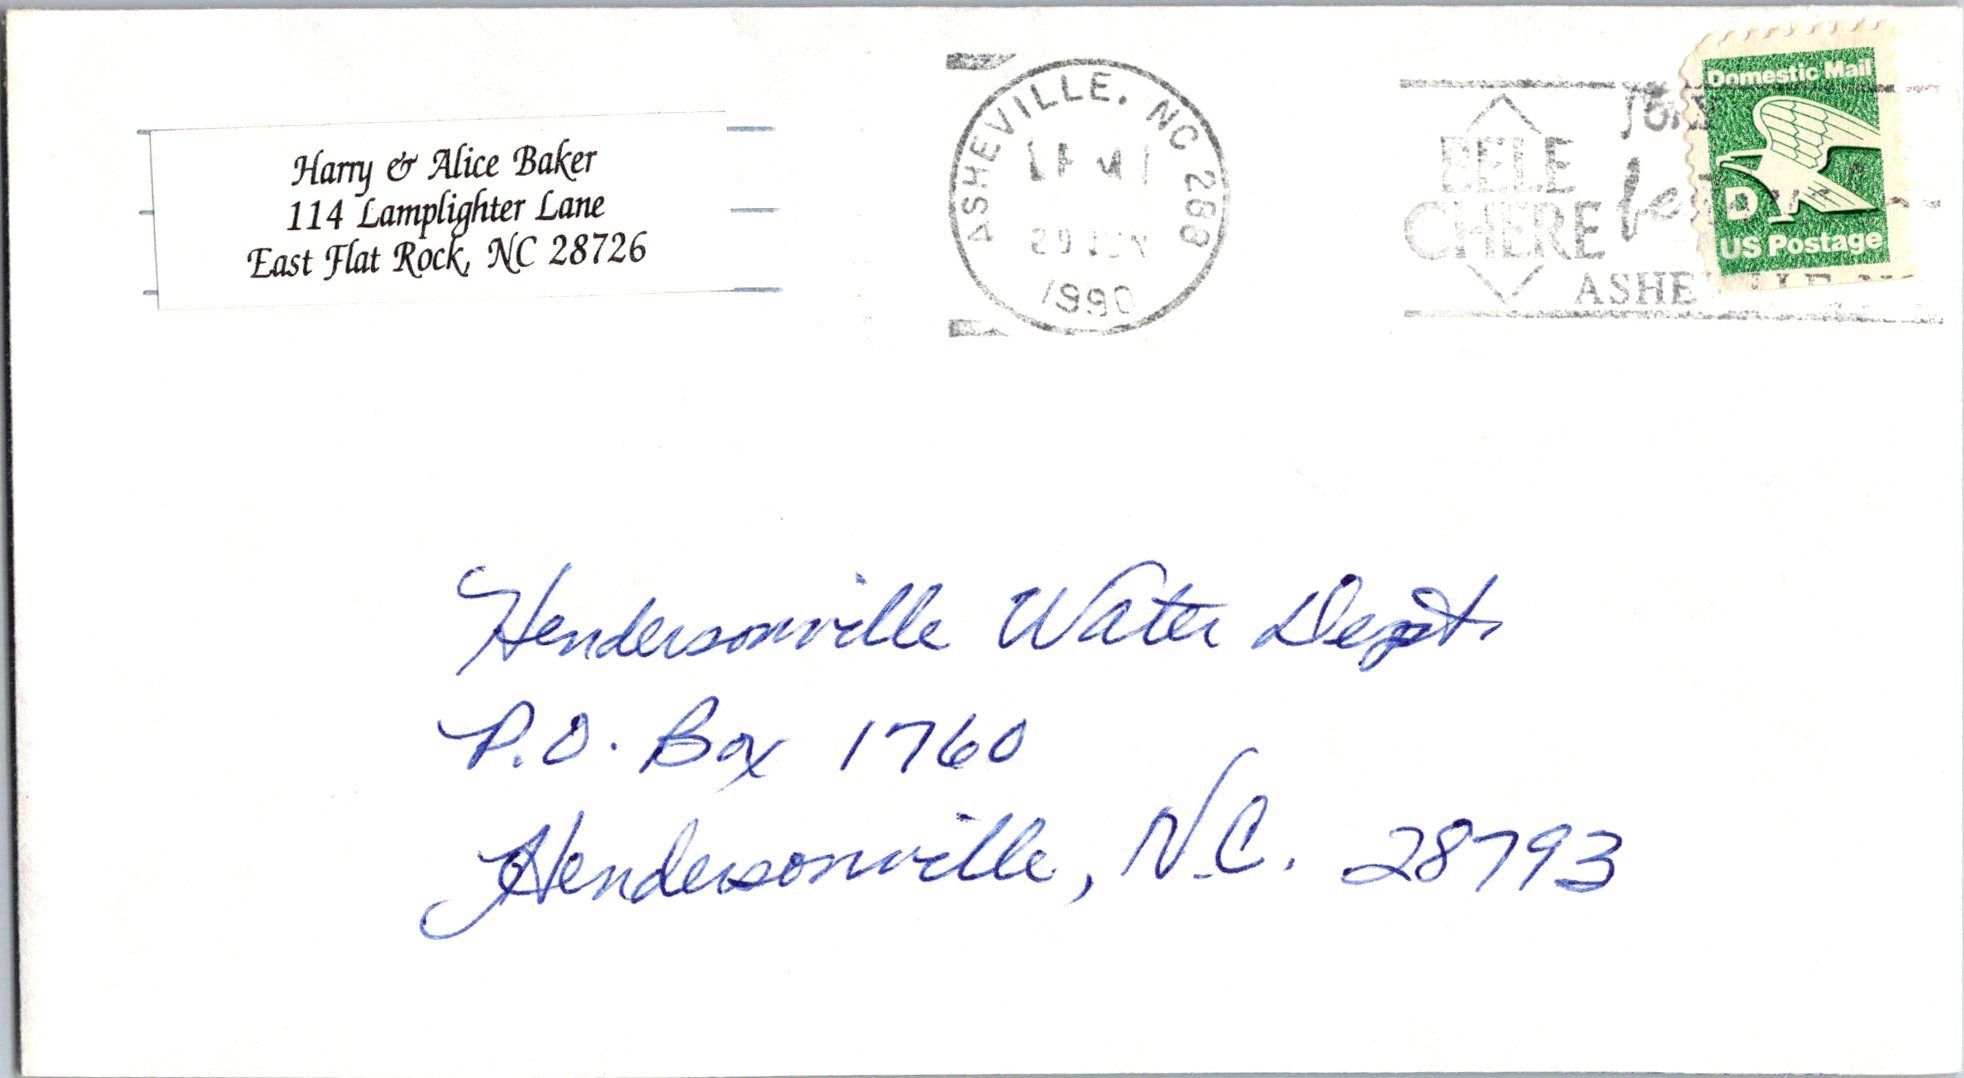 Harry & Alice Baker
114 Lamplighter Lane
East Flat Rock, NC 28726
ASHEVILLE, NC 288
PM
JUN
1990
BELE
CHERE
Domestic Mail
D
US Postage
Hendersonville Water Dept.
P.O. Box 1760
Hendersonville, N.C. 28793